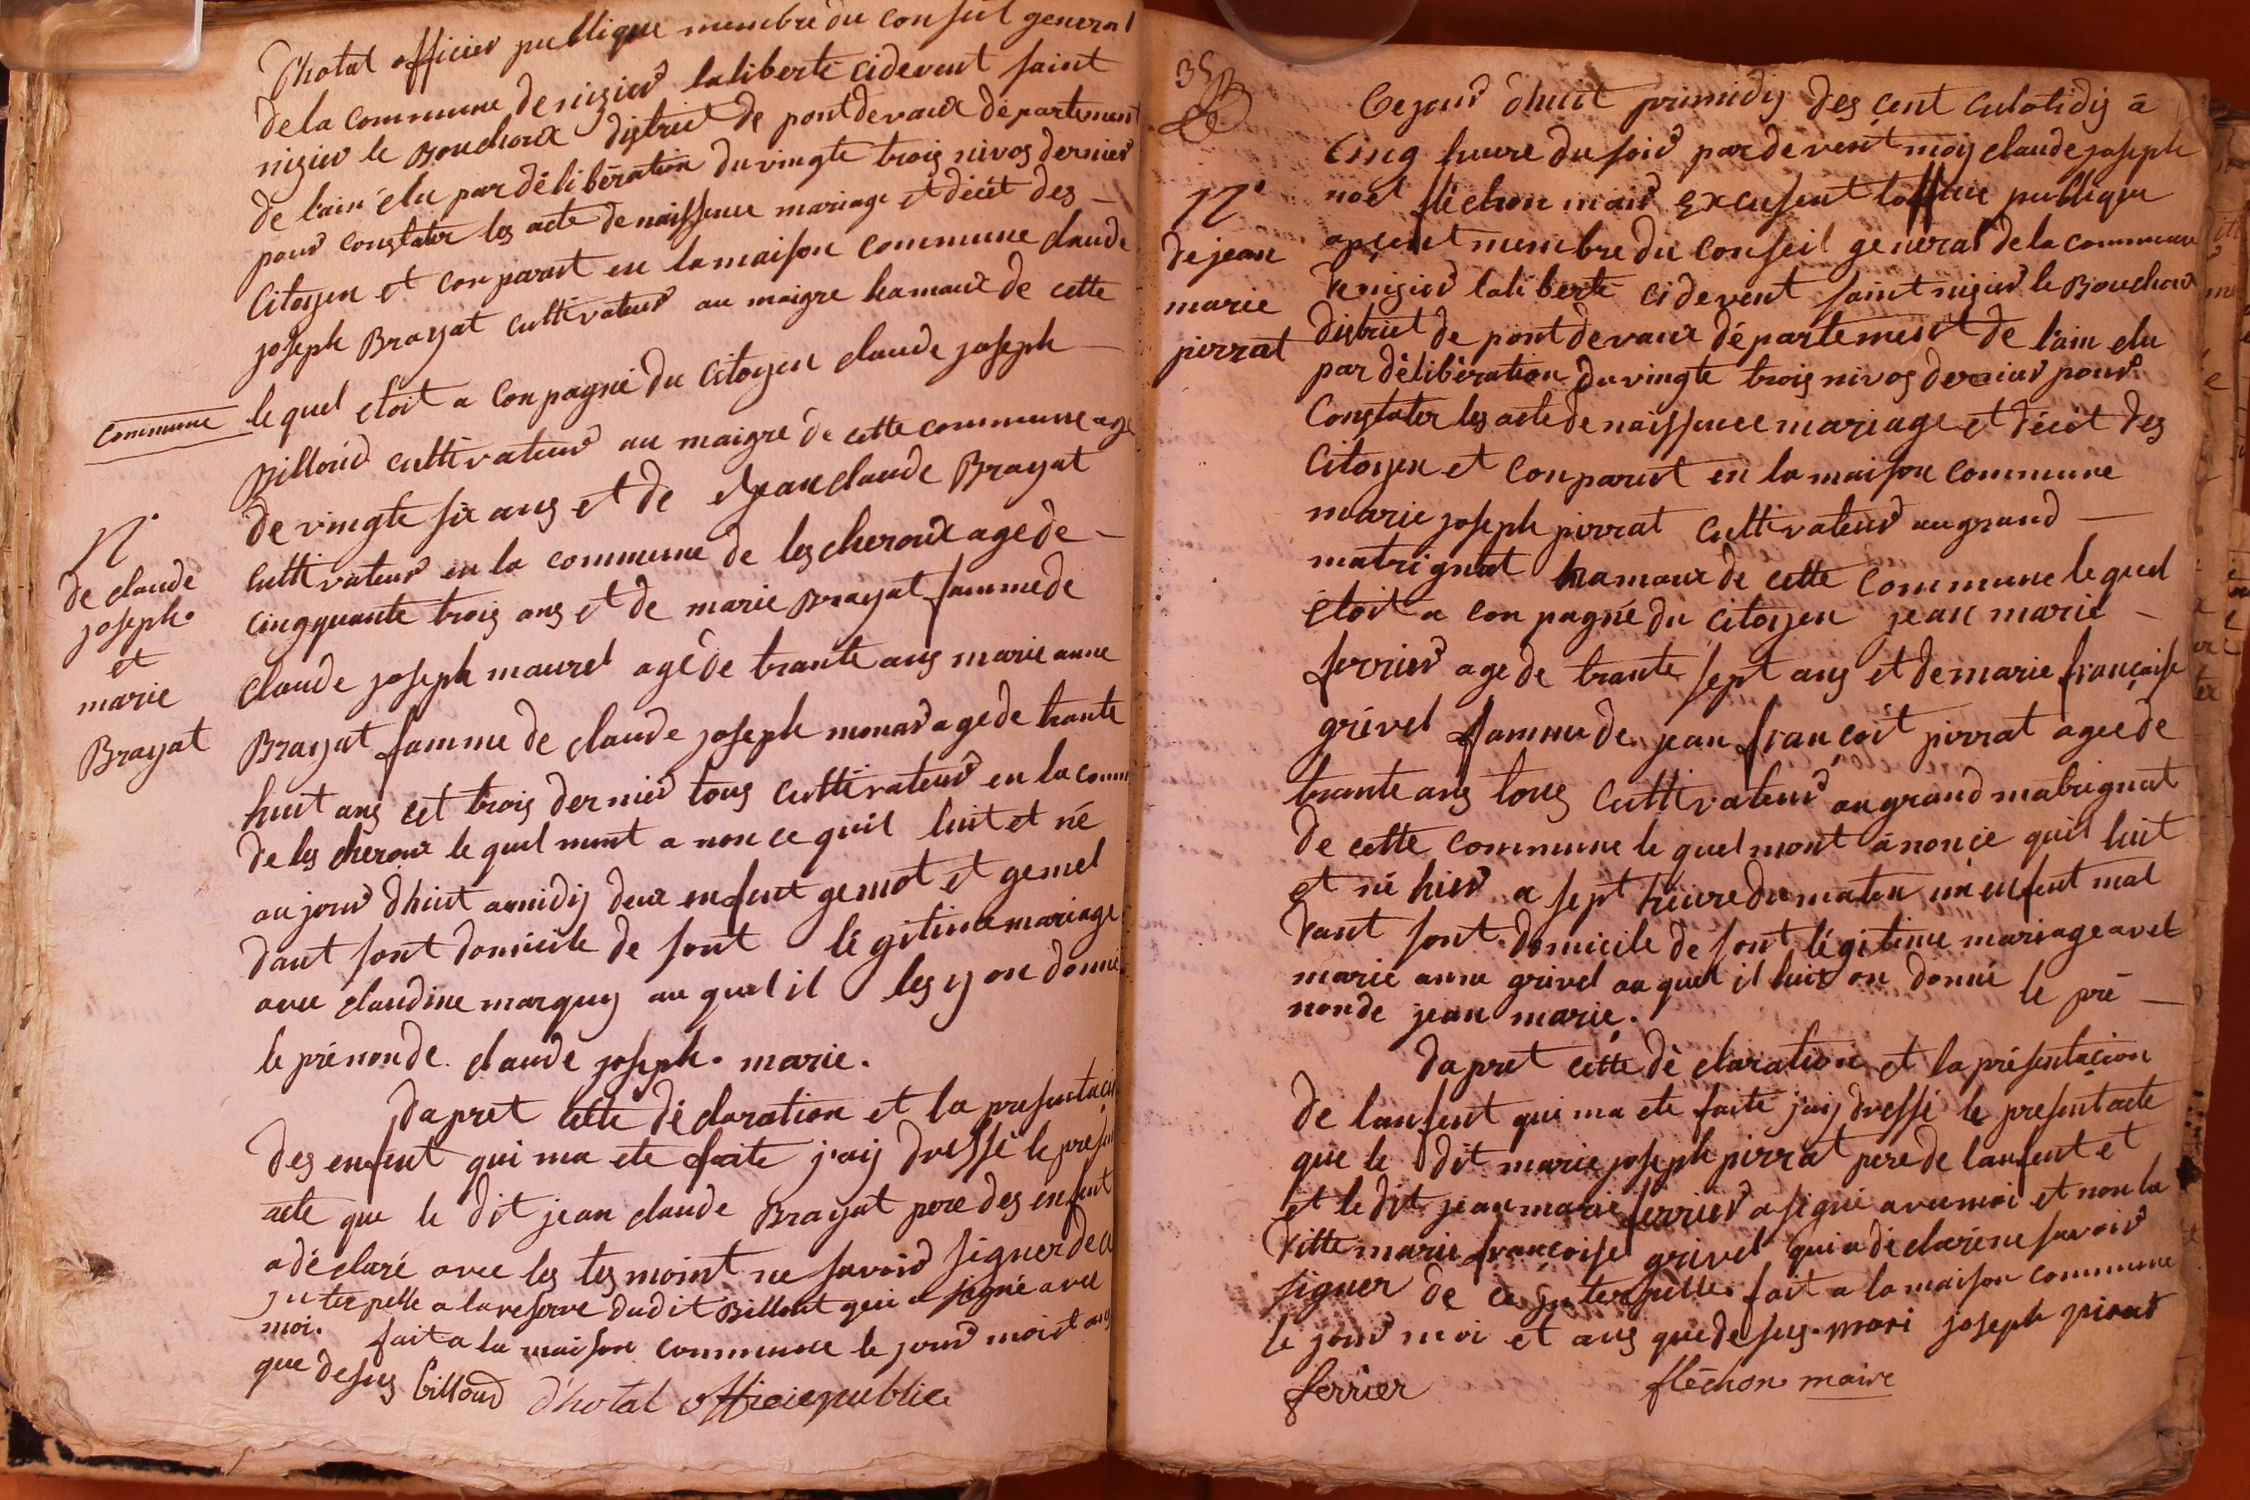 Dhotal officier publique membre du conseil general
de la commune de nizier laliberté cidevent saint
nizier le Bouchoux district de pontdevaux département
de l'ain élu par délibération du vingte trois nivos dernier
pour constater les acte de naissence mariage et décét des
Citoyen et conparut en la maison commune claude
joseph Brayat cultivateur au maigre hamaux de cette
commune le quel etoit a conpagné du citoyen claude joseph
Billoud cultivateur au maigre de cette commune age
de vingte six ans et de jean claude Brayat
cultivateur en la commune de les cheroux age de
cingquante trois ans et de marie Brayat famme de
claude joseph maurel agé de trante ans marie anne
Brayat famme de claude joseph monar age de trante
huit ans cet trois dernier tous cultivateur en la comm
de les cheroux le quel mont a non ce quil luit et né
au jour dhuit amidij deux enfent gemot et gemel
dant sont domicile de sont légitime mariage
avec claudine marquy au quel il les y on donné
le prénon de claude joseph. marie.
dapret cette déclaration et la presentaci
des enfent qui ma ete faite j'aij dressé le presen
acte que le dit jean claude Brayat pere des enfent
a déclaré avec les tesmoint ne savoir signer de ce
jnterpelle a la reserve dudit Billout qui a signé avec
moi. fait a la maison commune le jour moit ans
que desus billoud dhotal officiepublic
N°
de claude
joseph.
et
marie
Brayat
35
Ce jour dhuit primidij des cent culotidij a
Cinq heure du soir par devent moij claude joseph
noet fléchon mair Excersent loffice publique
apsent membre du conseil general de la commune
de nizier laliberté cidevent saint nizier le Bouchoux
district de pontdevaux département de l'ain elu
par délibération du vingte trois nivos dernier pour
Constater les acte de naissence mariage et décét des
Citoyen et conparut en la maison commune
marie joseph pirrat cultivateur au grand
matrignat hamaux de cette commune le quel
etoit a conpagné du citoyen jean marie
ferrier age de trante sept ans et de marie françoise
grivel famme de jean françoit pirrat ageé de
trante ans tous cultivateur au grand matrignat
de cette commune le quel mont anoncé quil luit
et né hier a sept heure du maten un enfent mal
dant sont domicile de sont légitime mariage avet
marie anne grivel au quel il luit on donné le pré
nonde jean marie.
dapret cette déclaration et la présentacion
de lanfent qui ma ete faite j'aij dressé le present acte
que le dit marie joseph pirrat pere de lanfent et
et le dit jean marie ferrier a signé avec moi et non la
ditte marie françoise grivel qui a déclaréne savoir
signer de ce jnterpelle. fait a la maison commune
le jour moi et ans que desus. mari joseph pirat
ferrier fléchon maire
N°
de jean
marie
pirrat